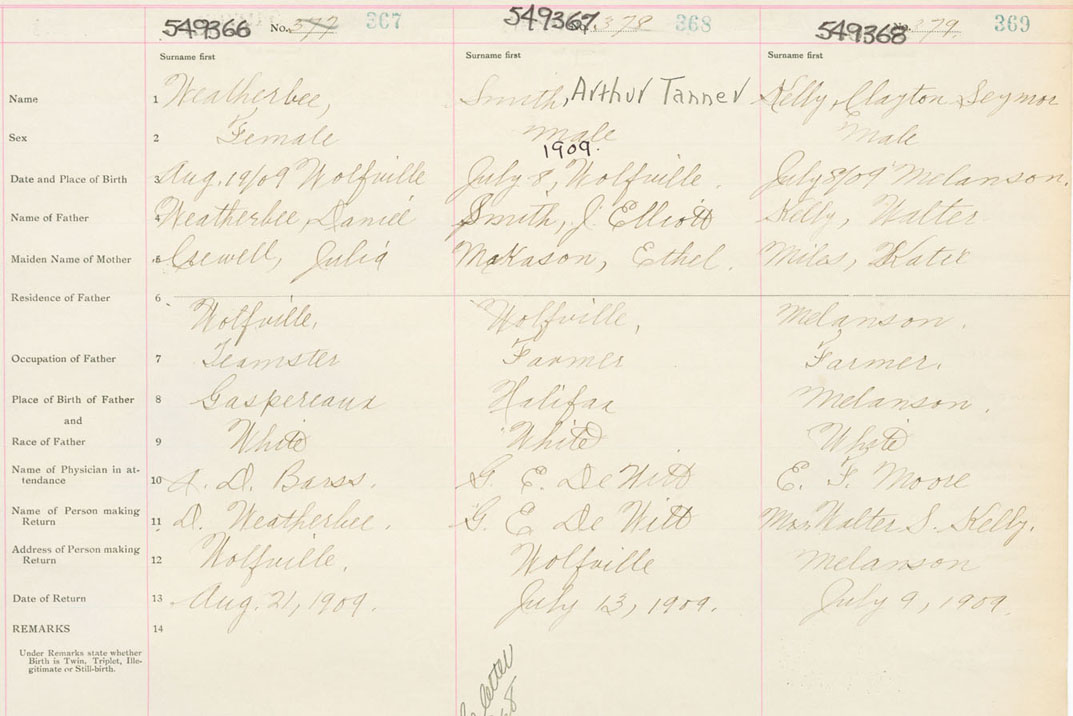 549366 No. 377 367 549367 378 368 549368 No. 379. 369
Surname first Surname first Surname first
Name 1 Weatherbee, Smith, Arthur Tanner Kelly, Clayton Seymor
Sex 2 Female Male Male
1909.
Date and Place of Birth 3 Aug. 19/09 Wolfville July 8, Wolfville. July 8/09 Melanson.
Name of Father 4 Weatherbee, Daniel Smith, J. Elliott Kelly, Walter
Maiden Name of Mother 5 Julia McKason, Ethel. Miles, Katie
Residence of Father 6
Wolfville. Wolfville, Melanson.
Occupation of Father 7 Teamster Farmer Farmer.
Place of Birth of Father 8 Gaspereaux Halifax Melanson.
and
Race of Father 9 White White White
Name of Physician in at-
tendance 10 D. Barss. G. E. DeWitt E. F. Moore
Name of Person making
Return 11 D. Weatherbee. G. E. DeWitt Mrs. Walter S. Kelly.
Address of Person making
Return 12 Wolfville. Wolfville Melanson
Date of Return 13 Aug. 21, 1909. July 13, 1909. July 9, 1909.
REMARKS 14
Under Remarks state whether
Birth is Twin, Triplet, Ille-
gitimate or Still-birth.
letter